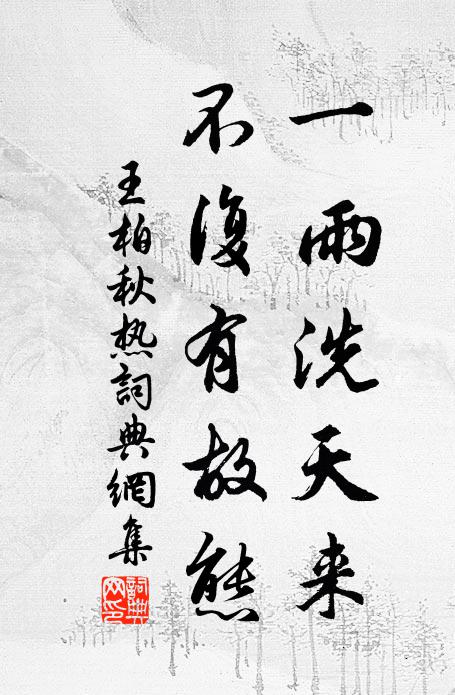 一雨洗天来
不復有故態
王柏秋热詞典網集
詞典网印